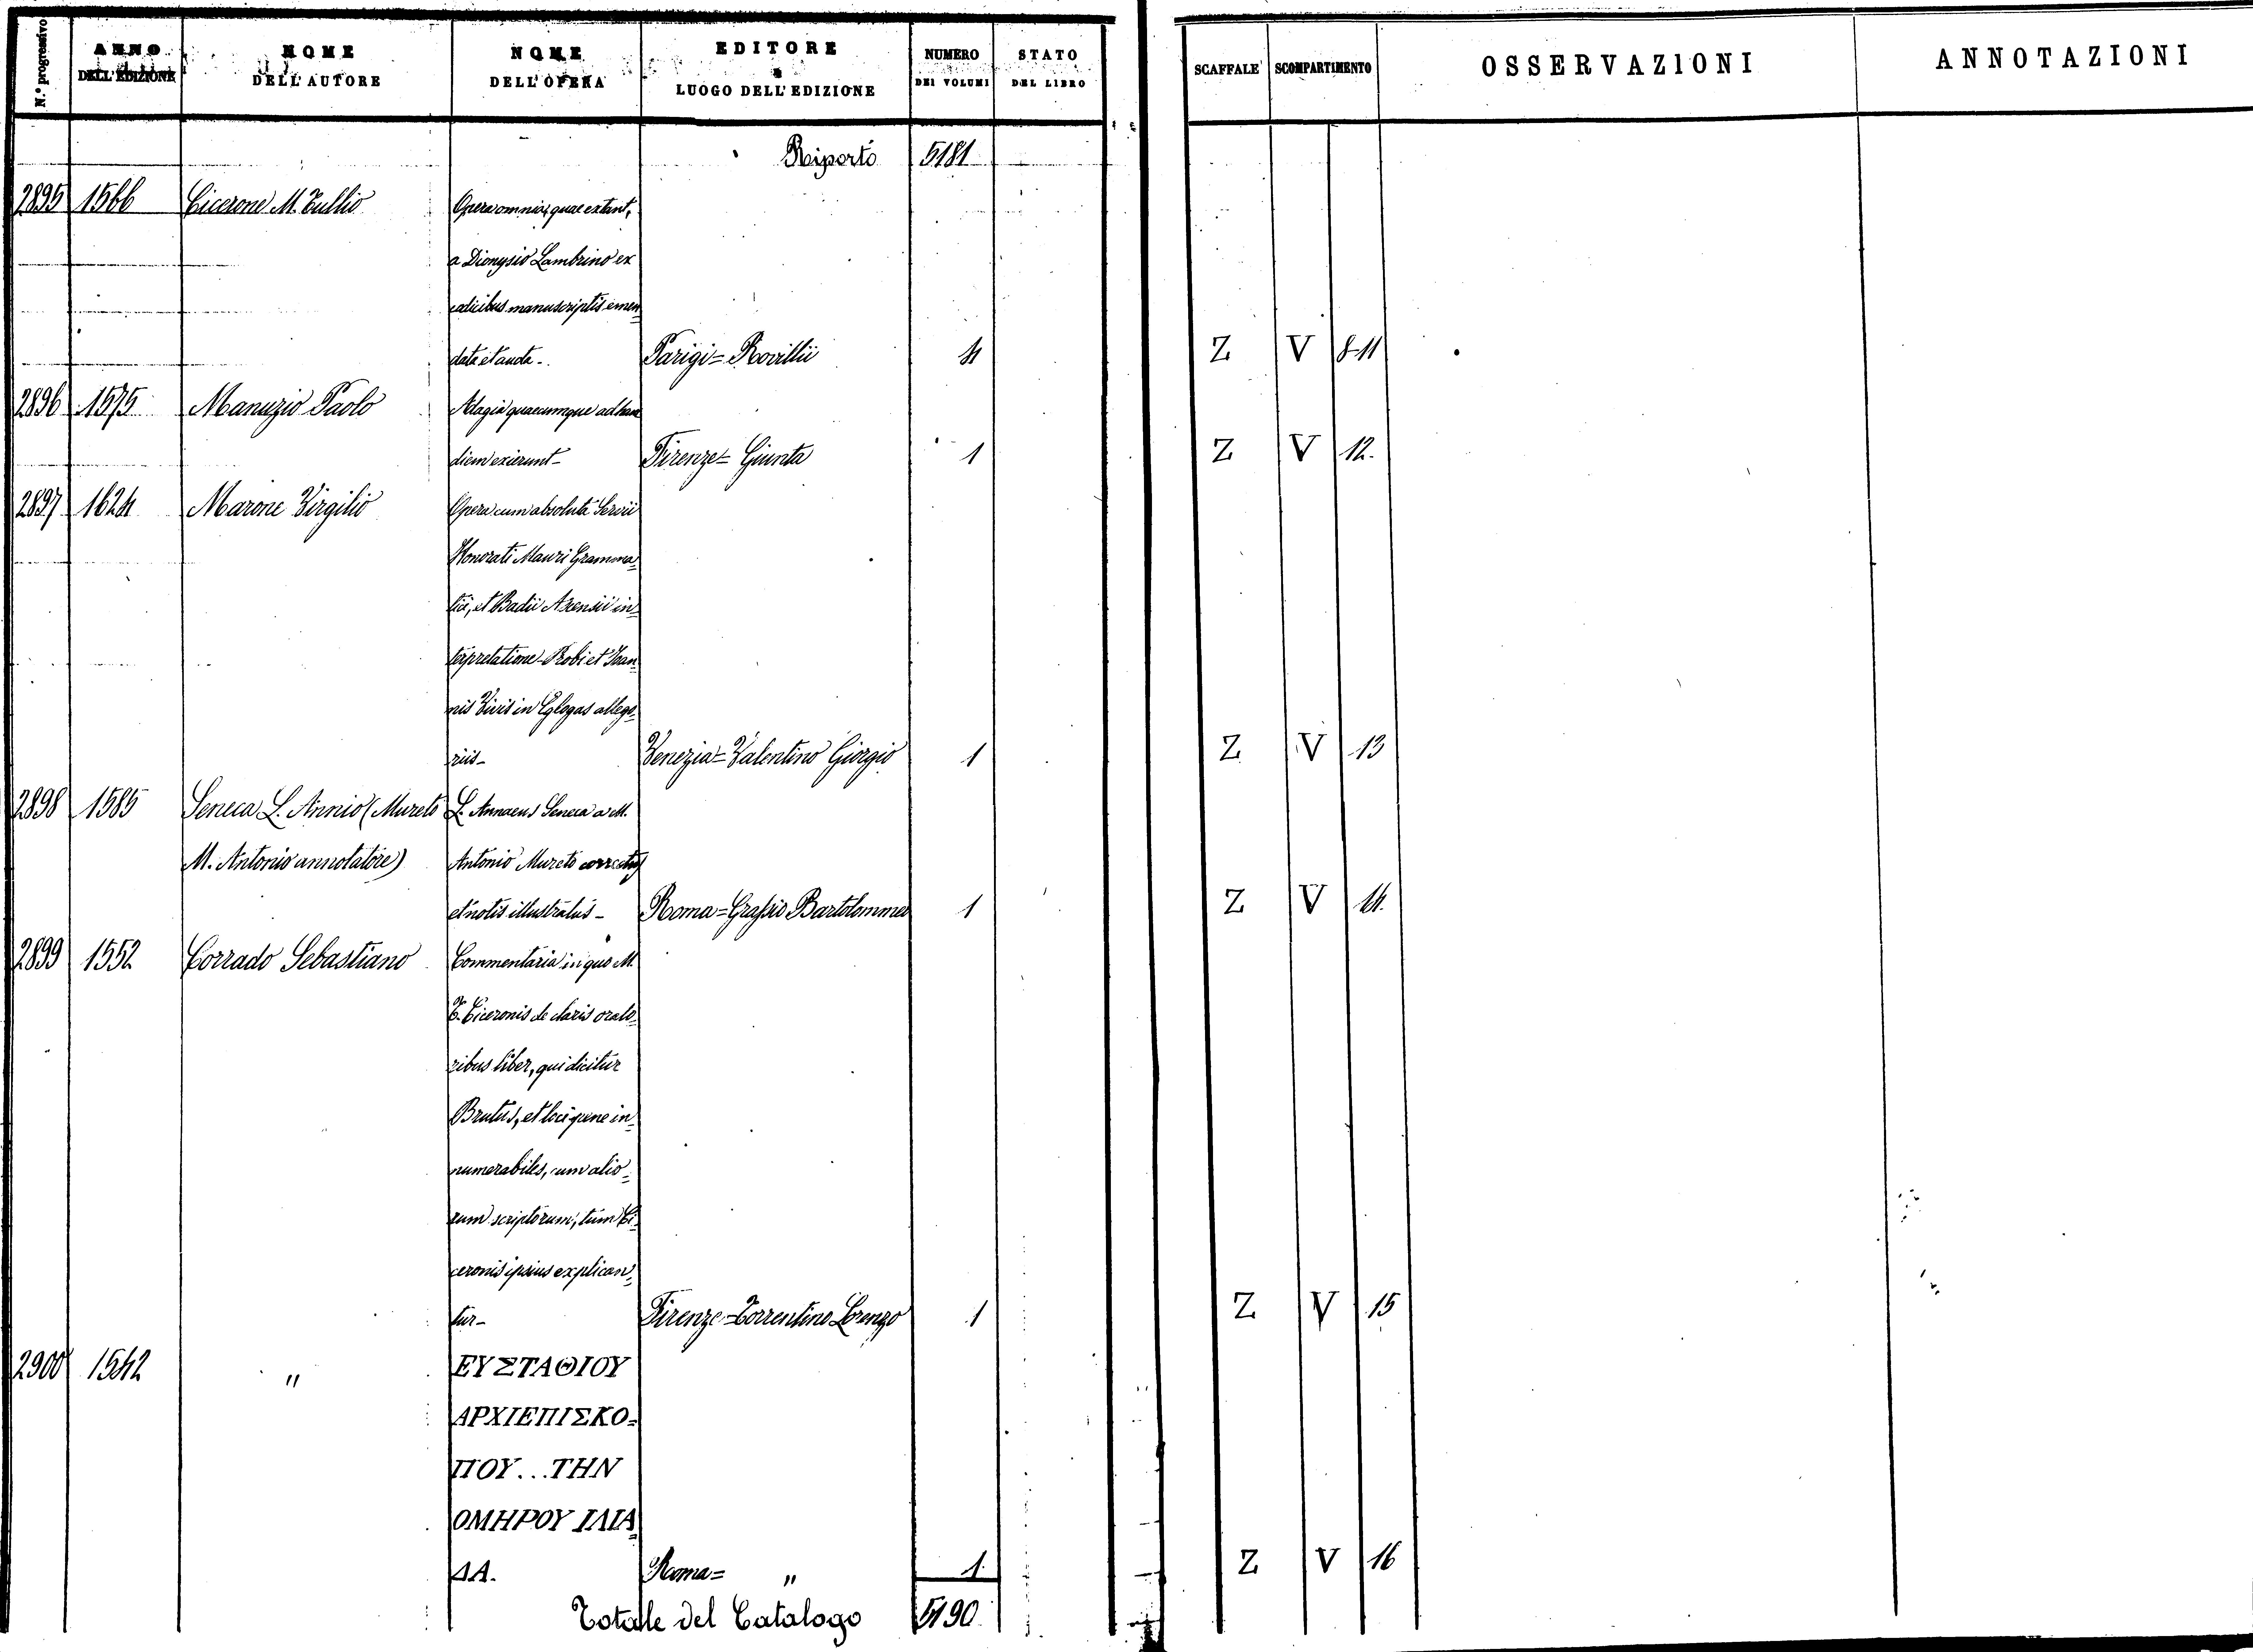 N.º progressivo ANNO DELL'EDIZIONE NOME DELL'AUTORE NOME DELL'OPERA EDITORE e LUOGO DELL'EDIZIONE NUMERO DEI VOLUMI STATO DEL LIBRO SCAFFALE SCOMPARTIMENTO OSSERVAZIONI ANNOTAZIONI
Riporto 5181
2895 1566 Cicerone M. Tullio Opera omnia, quae extant,
a Dionysio Lambrino ex
codicibus manuscriptis emen=
data et aucta - Parigi = Rovillii 4 Z V 8-11
2896 1575 Manuzio Paolo Adagia quaecumque ad hanc
diem exierunt - Firenze = Giunta 1 Z V 12.
2897 1624 Marone Virgilio Opera cum absoluta Servii
Honorati Mauri Gramma=
tici, et Badii Ascensii in=
terpretatione - Probi et Joan=
nis Vivis in Eglogas allego=
riis - Venezia = Valentino Giorgio 1 Z V 13
2898 1585 Seneca L. Annio (Mureto L. Annaeus Seneca a M.
M. Antonio annotatore) Antonio Mureto correctus
et notis illustratus - Roma = Grassio Bartolommeo 1 Z V 14.
2899 1552 Corrado Sebastiano Commentaria in quo M.
T. Ciceronis de claris orato=
ribus liber, qui dicitur
Brutus, et loci pene in=
numerabiles, cum alio=
rum scriptorum, tum Ci=
ceronis ipsius explican=
tur - Firenze = Torrentino Lorenzo 1 Z V 15
2900 1542 " ΕΥΣΤΑΘΙΟΥ
ΑΡΧΙΕΠΙΣΚΟ=
ΠΟΥ...ΤΗΝ
ΟΜΗΡΟΥ ΙΛΙΑ=
ΔΑ. Roma = " 1. Z V 16
Totale del Catalogo 5190